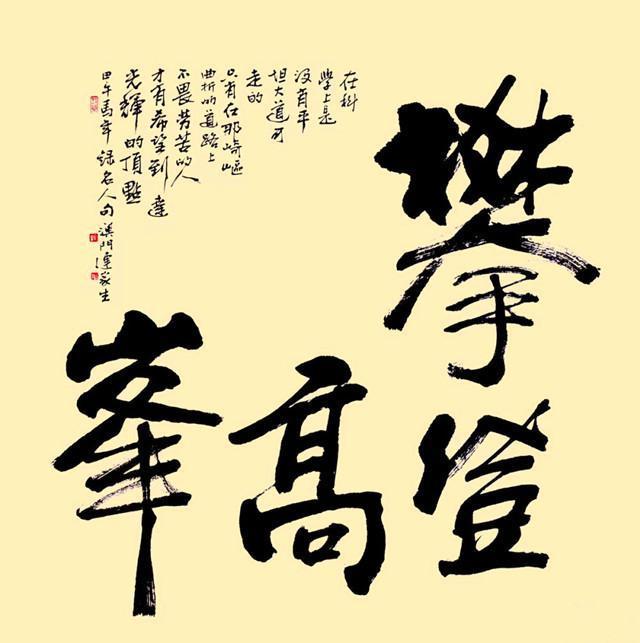 攀
登
高
峯
在科
學上是
没有平
坦大道可
走的
只有在那崎嶇
曲折的道路上
不畏勞苦的人
才有希望到達
光輝的頂點
甲午馬年錄名人句 澳門連家生